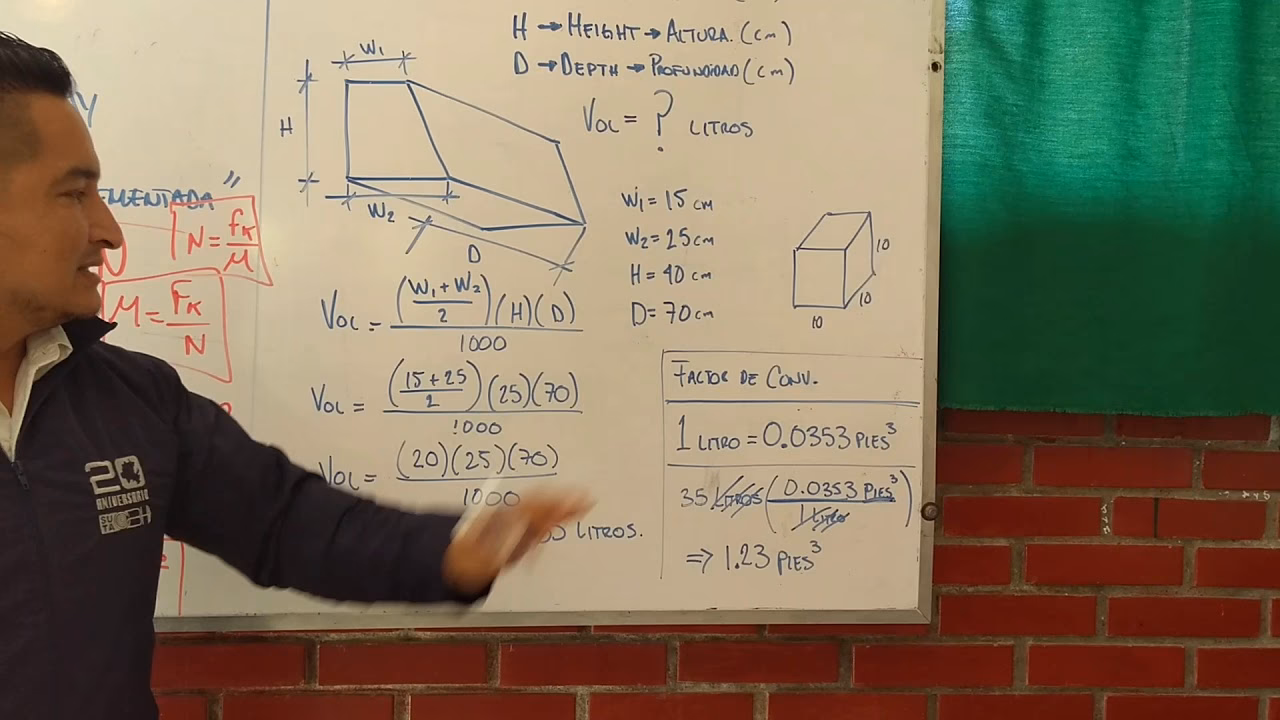 H → HEIGHT → ALTURA. (cm)
D → DEPTH → PROFUNDIDAD (cm)
VOL = ? LITROS
W1
H
W2
D
W1 = 15 cm
W2 = 25 cm
H = 40 cm
D = 70 cm
10
10
10
VOL = ((W1 + W2)/2)(H)(D) / 1000
VOL = ((15 + 25)/2)(25)(70) / 1000
VOL = (20)(25)(70) / 1000
LITROS.
FACTOR DE CONV.
1 LITRO = 0.0353 PIES³
35 LITROS (0.0353 PIES³ / 1 LITRO)
⇒ 1.23 PIES³
EMENTADA"
N = FK/M
M = FK/N
N
Y
20
ANIVERSARIO